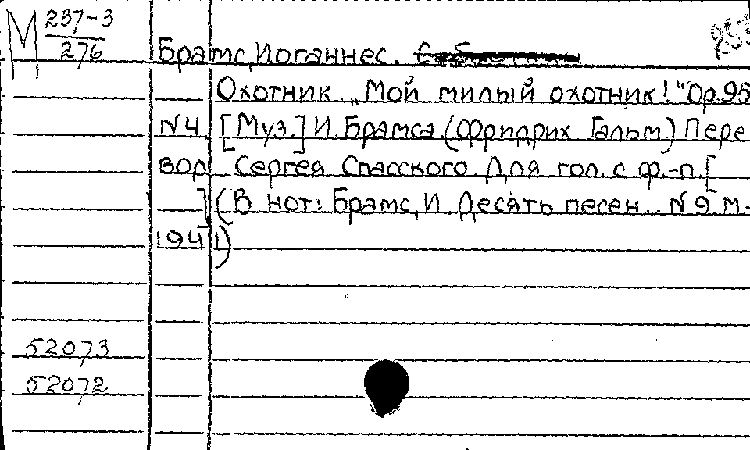 М 237-3
276
Брамс, Иоганнес.
Охотник. „Мой милый охотник!" Op. 95
N4. [Муз.] И. Брамса (Фридрих Гальм) Пере
вод Сергея Спасского. Для гол. с ф.-п. [
] (В нот: Брамс, И. Десять песен. N9 М.
1941)
52073
52072